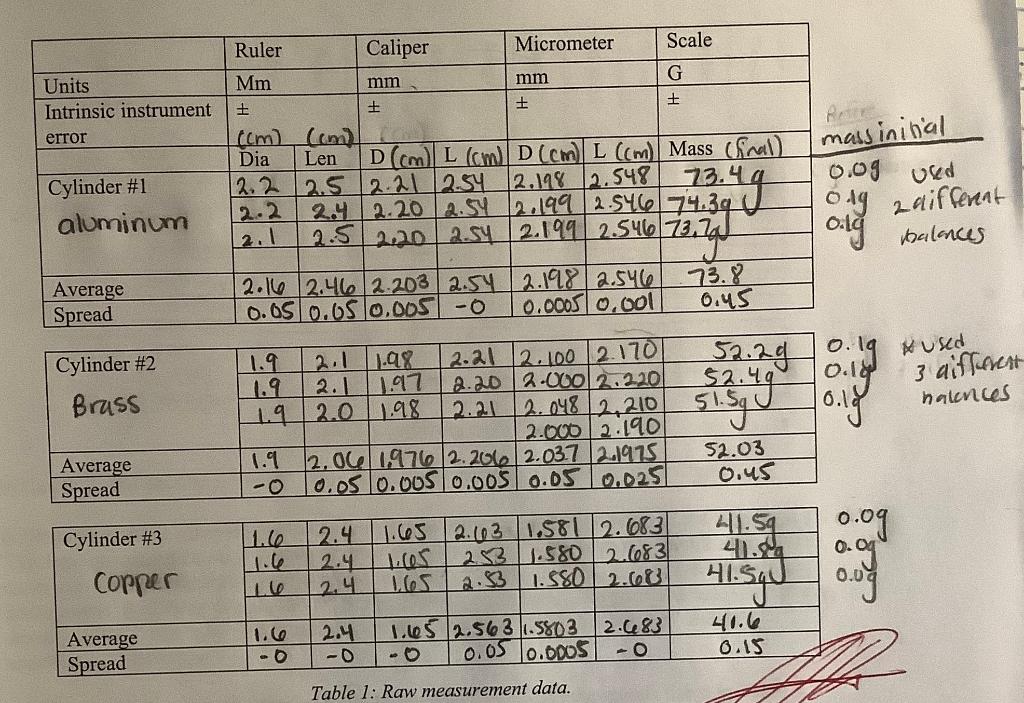 Ruler Caliper Micrometer Scale
Units Mm mm mm G
Intrinsic instrument error ± ± ± ±
(cm) (cm)
Dia Len D (cm) L (cm) D (cm) L (cm) Mass (final) mass initial
Cylinder #1 2.2 2.5 2.21 2.54 2.198 2.548 73.4g 0.0g used
aluminum 2.2 2.4 2.20 2.54 2.199 2.546 74.3g 0.1g 2 different
2.1 2.5 2.20 2.54 2.199 2.546 73.7g 0.1g balances
Average 2.16 2.46 2.203 2.54 2.198 2.546 73.8
Spread 0.05 0.05 0.005 -0 0.0005 0.001 0.45
Cylinder #2 1.9 2.1 1.98 2.21 2.100 2.170 52.2g 0.1g * used
1.9 2.1 1.97 2.20 2.000 2.220 52.4g 0.1g 3 different
Brass 1.9 2.0 1.98 2.21 2.048 2.210 51.5g 0.1g balences
2.000 2.190
Average 1.9 2.06 1.976 2.206 2.037 2.1975 52.03
Spread -0 0.05 0.005 0.005 0.05 0.025 0.45
Cylinder #3 1.6 2.4 1.65 2.63 1.581 2.683 41.5g 0.0g
1.6 2.4 1.65 2.53 1.580 2.683 41.8g 0.0g
Copper 1.6 2.4 1.65 2.53 1.580 2.683 41.5g 0.0g
Average 1.6 2.4 1.65 2.563 1.5803 2.683 41.6
Spread -0 -0 -0 0.05 0.0005 -0 0.15
Table 1: Raw measurement data.